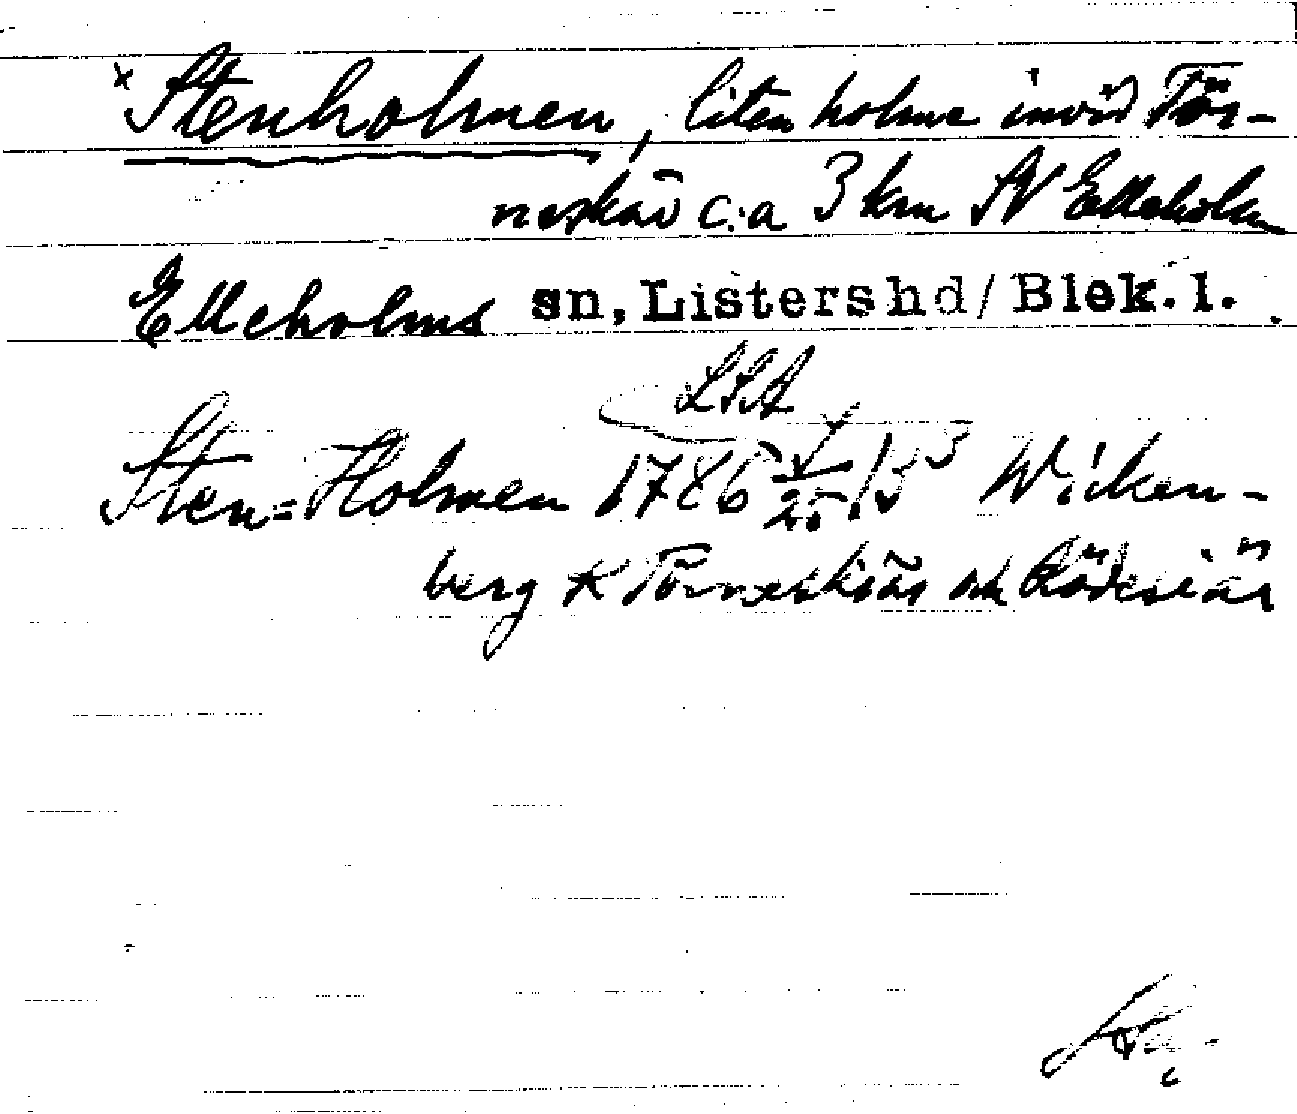 x Stenholmen, liten holme invid Tör-
neskär c:a 3 km SV Elleholm
Elleholms sn, Listers hd/Blek. l.
LSA
Sten=Holmen 1786 Wicken-
berg K Törneskiär och Rödeskiär